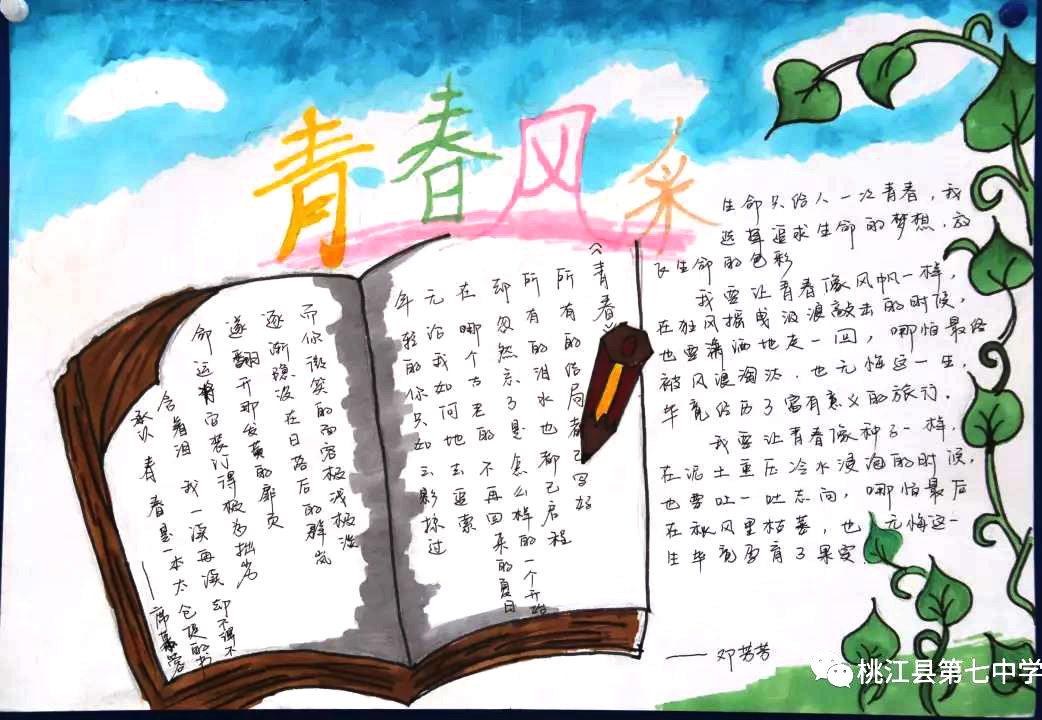 青春风采
《青春》
所有的结局都已写好
所有的泪水也都已启程
却忽然忘了是怎么样的一个开始
在哪个古老的不再回来的夏日
无论我如何地去追索
年轻的你只如云影掠过
而你微笑的面容极浅极淡
逐渐隐没在日落后的群岚
遂翻开那发黄的扉页
命运将它装订得极为拙劣
含着泪 我一读再读 却不得不
承认 青春是一本太仓促的书
——席慕容
生命只给人一次青春，我
选择追求生命的梦想，放
飞生命的色彩
我要让青春像风帆一样，
在狂风摇曳汲浪敲击的时候，
也要潇洒地走一回，哪怕最终
被风浪淘汰，也无悔这一生，
毕竟经历了富有意义的旅行。
我要让青春像种子一样，
在泥土重压冷水浸泡的时候，
也要吐一吐志向，哪怕最后
在秋风里枯萎，也无悔这一
生毕竟孕育了果实.
——邓芳芳
桃江县第七中学